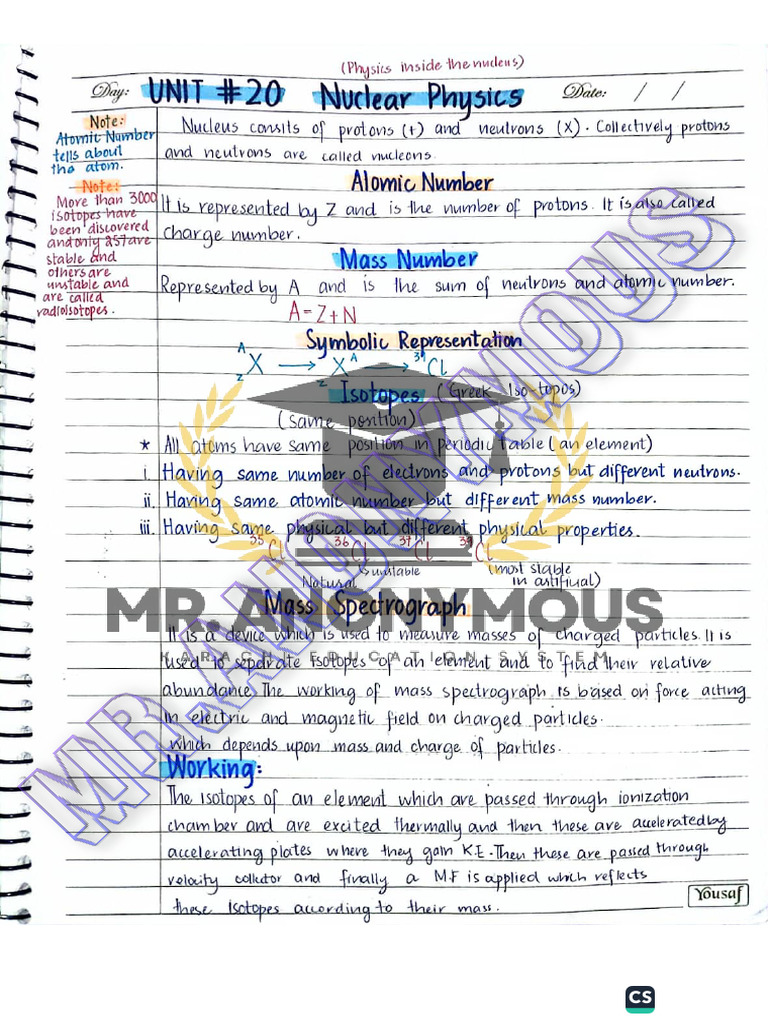 (Physics inside the nucleus)
Day: UNIT #20 Nuclear Physics Date: / /
Note:
Atomic Number
tells about
the atom.
Note:
More than 3000
isotopes have
been discovered
and only 257 are
stable and
others are
unstable and
are called
radioisotopes.
Nucleus consits of protons (+) and neutrons (X). Collectively protons
and neutrons are called nucleons.
Atomic Number
It is represented by Z and is the number of protons. It is also called
charge number.
Mass Number
Represented by A and is the sum of neutrons and atomic number.
A=Z+N
Symbolic Representation
A Z X → Z X A → 37 Cl
Isotopes (Greek Iso-topos)
(same position)
* All atoms have same position in periodic table (an element)
i. Having same number of electrons and protons but different neutrons.
ii. Having same atomic number but different mass number.
iii. Having same physical but different physical properties.
35 Cl 36 Cl 37 Cl 39 Cl
↳unstable (most stable
Natural in artificial)
Mass Spectrograph
MR. ANONYMOUS
It is a device which is used to measure masses of charged particles. It is
KARACHI EDUCATION SYSTEM
used to separate isotopes of an element and to find their relative
abundance. The working of mass spectrograph is based on force acting
in electric and magnetic field on charged particles.
which depends upon mass and charge of particles.
MR.ANONYMOUS
Working:
The isotopes of an element which are passed through ionization
chamber and are excited thermally and then these are accelerated by
accelerating plates where they gain K.E. Then these are passed through
velocity collector and finally a M.F is applied which reflects
these isotopes according to their mass.
Yousaf
CS